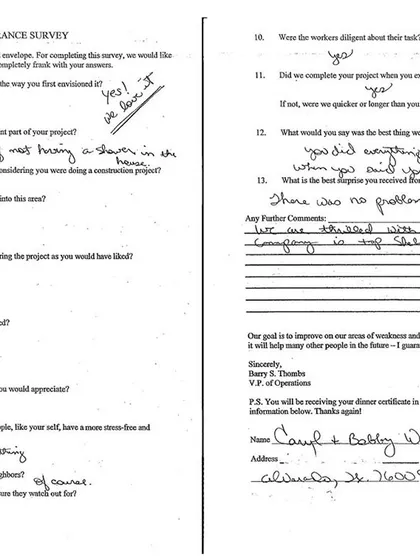 RANCE SURVEY
envelope. For completing this survey, we would like
ompletely frank with your answers.
the way you first envisioned it?
yes!
we love it
nt part of your project?
not having a shower in the
house.
onsidering you were doing a construction project?
into this area?
ring the project as you would have liked?
ed?
ou would appreciate?
ple, like your self, have a more stress-free and
thing
ighbors?
of course.
ure they watch out for?
10. Were the workers diligent about their task?
yes
11. Did we complete your project when you ex
yes
If not, were we quicker or longer than you
12. What would you say was the best thing we
you did everything
when you said you
13. What is the best surprise you received from
There was no problem
Any Further Comments:
We are thrilled with
Company is top Shel
Our goal is to improve on our areas of weakness and
it will help many other people in the future -- I guara
Sincerely,
Barry S. Thombs
V.P. of Operations
P.S. You will be receiving your dinner certificate in
information below. Thanks again!
Name Caryl & Bobby W
Address
Alvarado, Tx. 7600